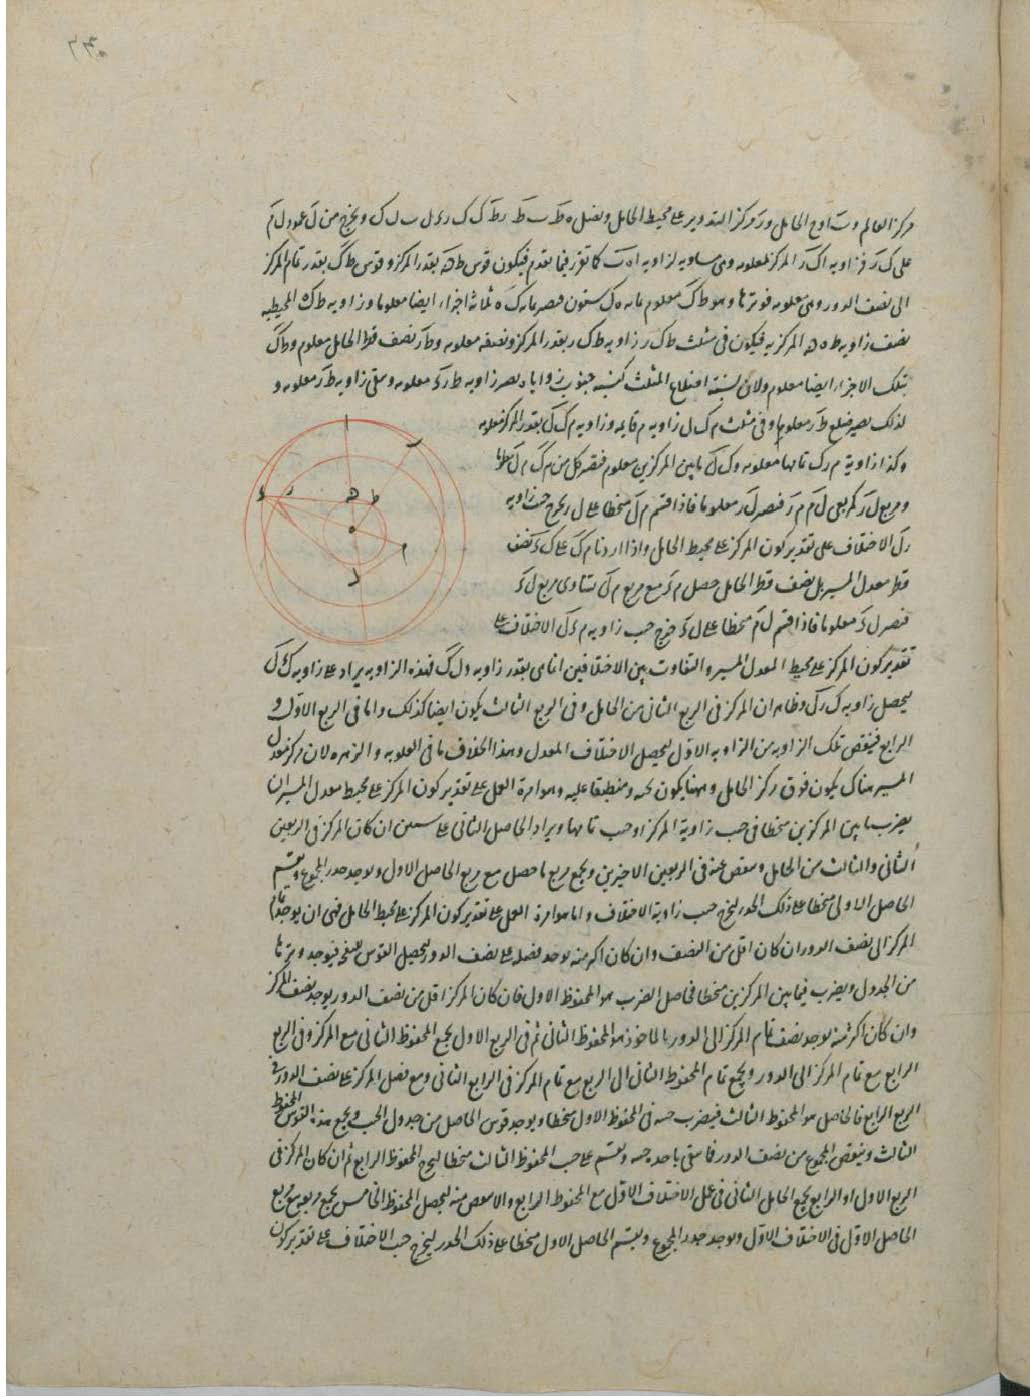 مركز العالم و ب اوج الحامل و ر مركز التدوير على محيط الحامل ونصل ه ط ب ط ر ط ك ك ر ل ب ل ك ونخرج من ل عمود ل م
على ك ر فزاوية ا ك ر المركز المعلومه وهى مساويه لزاويه ا ه ب كما تقرر فيما تقدم فيكون قوس ط ه بقدر المركز وقوس ط ك بقدر تمام المركز
الى نصف الدور وهى معلومه فوترها وهو ط ك معلوم ايضا معلوما وزاويه ط ك المحيطيه
نصف زاويه ط ه المركزيه فيكون فى مثلث ط ك ر زاويه ط ك ر بقدر المركز ونصفه معلومه و ط ر نصف قطر الحامل معلوم و ط ك
بتلك الاجزاء ايضا معلوم ولان نسبة اضلاع المثلث كنسبه جيوب زواياه يصير زاويه معلومه وتبقى زاويه ط ر معلومه و
لذلك يصير ضلع ط ر معلوما وفى مثلث م ك ل زاويه م قايمه وزاويه م ك ل بقدر المركز معلومه
وكذا زاوية م ر ك تمامها معلومه و ك ل ما بين المركزين معلوم فيصير كل من م ك م ل معلوما
ومربع ل ر كمربعى ل م م ر فيصير ل ر معلوما فاذا قسم م ل منحطا على ل ر يخرج جيب زاويه
ر ل الاختلاف على تقدير كون المركز على محيط الحامل واذا اردنا م ك على ك ء نصف
قطر معدل المسير بل نصف قطر الحامل حصل م ء مع مربع م ل يساوى مربع ل ء
فيصير ل ء معلوما فاذا قسم ل م منحطا على ل ء خرج جيب زاويه م ء ل الاختلاف على
تقدير كون المركز على محيط المعدل المسير والتفاوت بين الاختلافين انما هى بقدر زاويه فهذه الزاويه يزاد على زاويه
ليحصل زاويه ك ر ل وظاهر ان المركز فى الربع الثانى من الحامل وفى الربع الثالث يكون ايضا كذلك واما فى الربع الاول و
الرابع فينقص تلك الزاويه من الزاويه الاولى ليحصل الاختلاف المعدل وهذا بخلاف ما فى العلويه والزهره لان مركز معدل
المسير هناك يكون فوق مركز الحامل وههنا يكون تحته ومنطبقا عليه وموامرة العمل على تقدير كون المركز على محيط معدل المسير ان
يضرب ما بين المركزين منحطا فى جيب زاوية المركز او جيب تمامها ويزاد الحاصل الثانى على ستين ان كان المركز فى الربعين
الثانى والثالث من الحامل وينقص عنه فى الربعين الاخيرين ويجمع مربع ما حصل مع مربع الحاصل الاول ويوجد جذر المجموع ويقسم
الحاصل الاول منحطا على ذلك الجذر ليخرج جيب زاوية الاختلاف واما موامرة العمل على تقدير كون المركز على محيط الحامل فهى ان يوجد تمام
المركز الى نصف الدور ان كان اقل من النصف وان كان اكثر منه يوجد فضله على نصف الدور ليحصل القوس المنقحه فيوجد وترها
من الجدول ويضرب فيما بين المركزين منحطا فحاصل الضرب هو المحفوظ الاول فان كان المركز اقل من نصف الدور يوجد نصف المركز
وان كان اكثر منه يوجد نصف تمام المركز الى الدور فالماخوذ هو المحفوظ الثانى ثم فى الربع الاول يجمع المحفوظ الثانى مع المركز وفى الربع
الرابع مع تمام المركز الى الدور ويجمع تمام المحفوظ الثانى الى الربع مع تمام المركز فى الرابع الثانى ومع فضل المركز على نصف الدور فى
الربع الرابع فالحاصل هو المحفوظ الثالث فيضرب جيبه فى المحفوظ الاول منحطا ويوجد قوس الحاصل من جدول الجيب ويجمع هذه القوس المحفوظ
الثالث وينقص المجموع من نصف الدور فما بقى ياخذ جيبه ويقسم على جيب المحفوظ الثالث منحطا ليخرج المحفوظ الرابع ثم ان كان المركز فى
الربع الاول او الرابع يجمع الحامل الثانى فى عمل الاختلاف الاول مع المحفوظ الرابع والا ينقص منه ليحصل المحفوظ الخامس يجمع مربعه مع مربع
الحاصل الاول فى الاختلاف الاول ويوجد جذر المجموع ويقسم الحاصل الاول منحطا على ذلك الجذر ليخرج جيب الاختلاف على تقدير كون